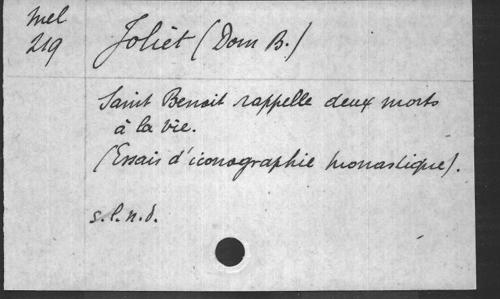 Mel
219
Joliet (Dom B.)
Saint Benoit rappelle deux morts
à la vie.
(Essais d'iconographie monastique).
s.l.n.d.